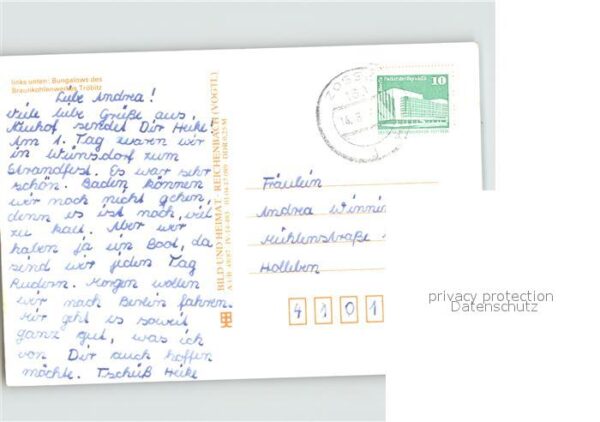 links unten: Bungalows des
Braunkohlenwerkes Tröbitz
Liebe Andrea!
Viele liebe Grüße aus
Neuhof sendet Dir Heike!
Am 1. Tag waren wir
in Wünsdorf zum
Strandfest. Es war sehr
schön. Baden können
wir noch nicht gehen,
denn es ist noch viel
zu kalt. Aber wir
haben ja ein Boot, da
sind wir jeden Tag
Rudern. Morgen wollen
wir nach Berlin fahren.
Mir geht es soweit
ganz gut, was ich
von Dir auch hoffen
möchte. Tschüß Heike
BILD UND HEIMAT · REICHENBACH (VOGTL)
ZOSS
10
Fräulein
Andrea Winnin
Mühlenstraße
Holleben
4101
privacy protection
Datenschutz